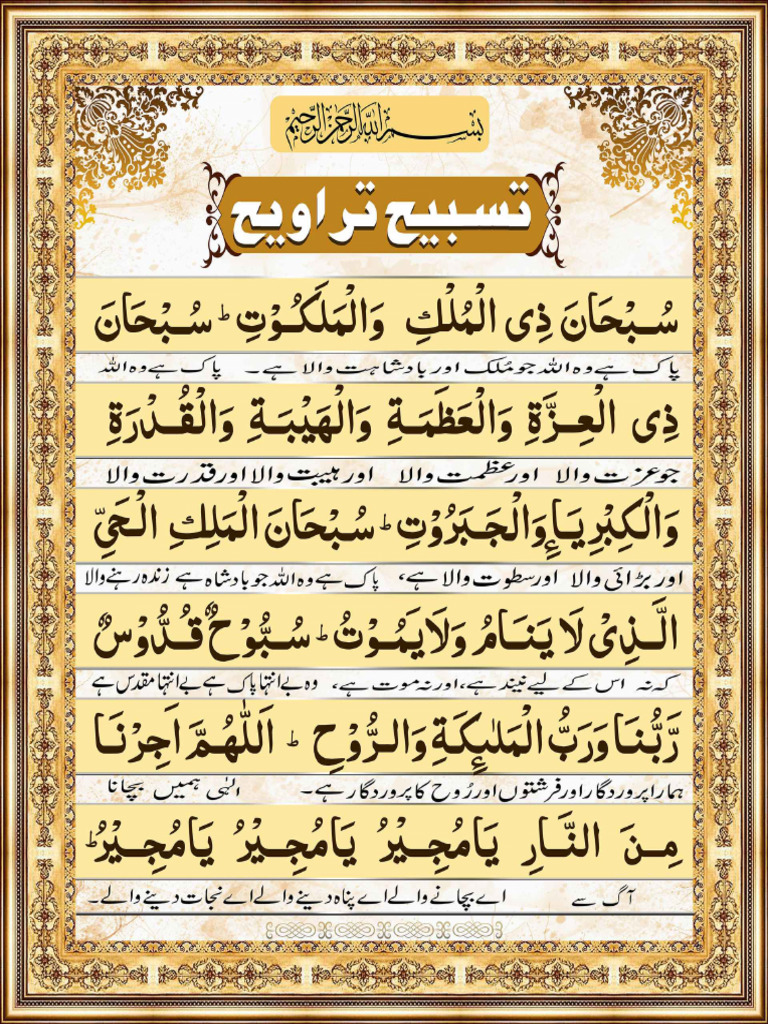 بسم الله الرحمن الرحيم
تسبیح تراویح
سُبْحَانَ ذِی الْمُلْكِ وَالْمَلَكُوْتِ ؕ سُبْحَانَ
پاک ہے وہ اللہ جو مُلک اور بادشاہت والا ہے۔ پاک ہے وہ اللہ
ذِی الْعِزَّةِ وَالْعَظَمَةِ وَالْهَيْبَةِ وَالْقُدْرَةِ
جو عزت والا اور عظمت والا اور ہیبت والا اور قدرت والا
وَالْكِبْرِيَاءِ وَالْجَبَرُوْتِ ؕ سُبْحَانَ الْمَلِكِ الْحَیِّ
اور بڑائی والا اور سطوت والا ہے، پاک ہے وہ اللہ جو بادشاہ ہے زندہ رہنے والا
الَّذِیْ لَا يَنَامُ وَلَا يَمُوْتُ ؕ سُبُّوْحٌ قُدُّوْسٌ
کہ نہ اس کے لیے نیند ہے، اور نہ موت ہے، وہ بے انتہا پاک ہے بے انتہا مقدس ہے
رَّبُّنَا وَرَبُّ الْمَلٰٓئِكَةِ وَالرُّوْحِ ؕ اَللّٰهُمَّ اَجِرْنَا
ہمارا پروردگار اور فرشتوں اور رُوح کا پروردگار ہے۔ الہٰی ہمیں بچانا
مِنَ النَّارِ يَا مُجِيْرُ يَا مُجِيْرُ يَا مُجِيْرُ ؕ
آگ سے اے بچانے والے اے پناہ دینے والے اے نجات دینے والے۔